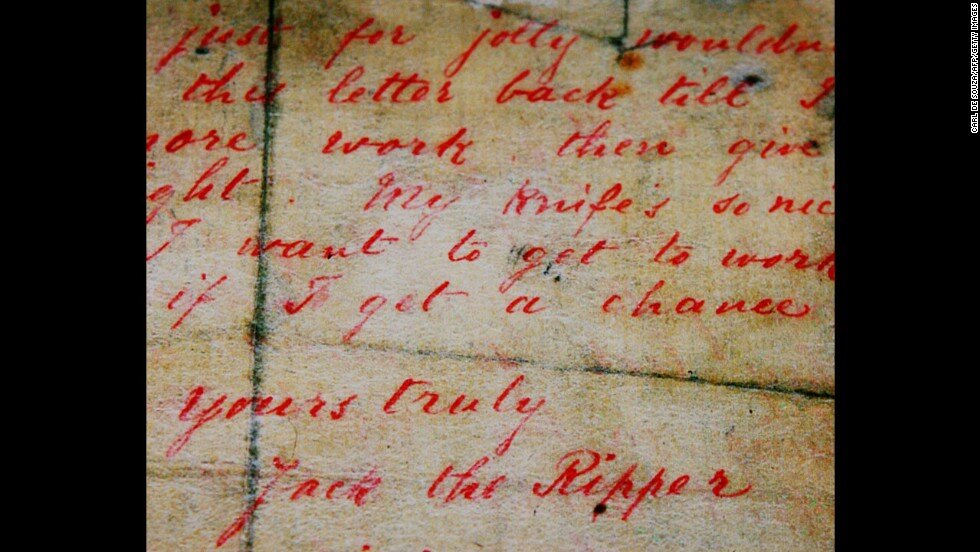 just for jolly wouldn
this letter back till I
more work. then give
ght. My knife's so nic
I want to get to work
if I get a chance
yours truly
Jack the Ripper
CARL DE SOUZA/AFP/GETTY IMAGES